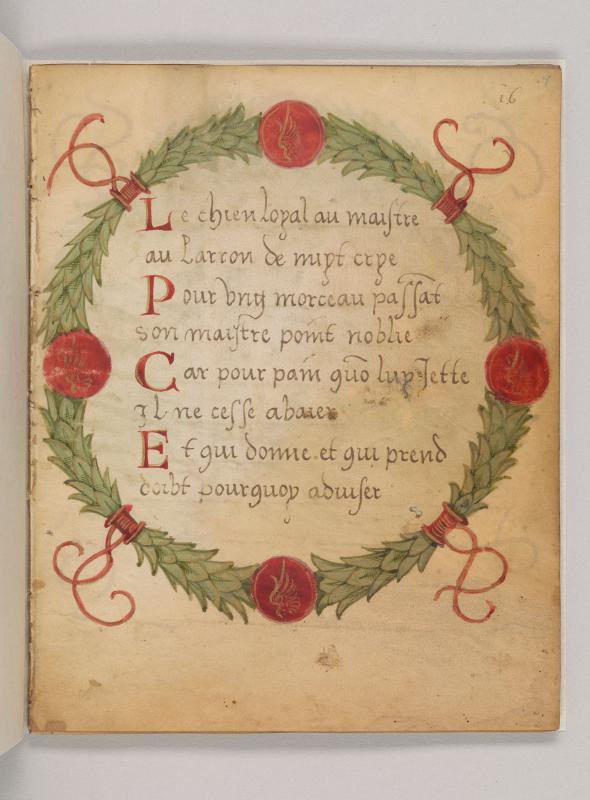 16
Le chien loyal au maistre
au Larron de nuyt crye
Pour vng morceau passāt
son maistre point noblie
Car pour pain quō luy Jette
Jl ne cesse abaier
Et qui donne et qui prend
doibt pourquoy aduiser